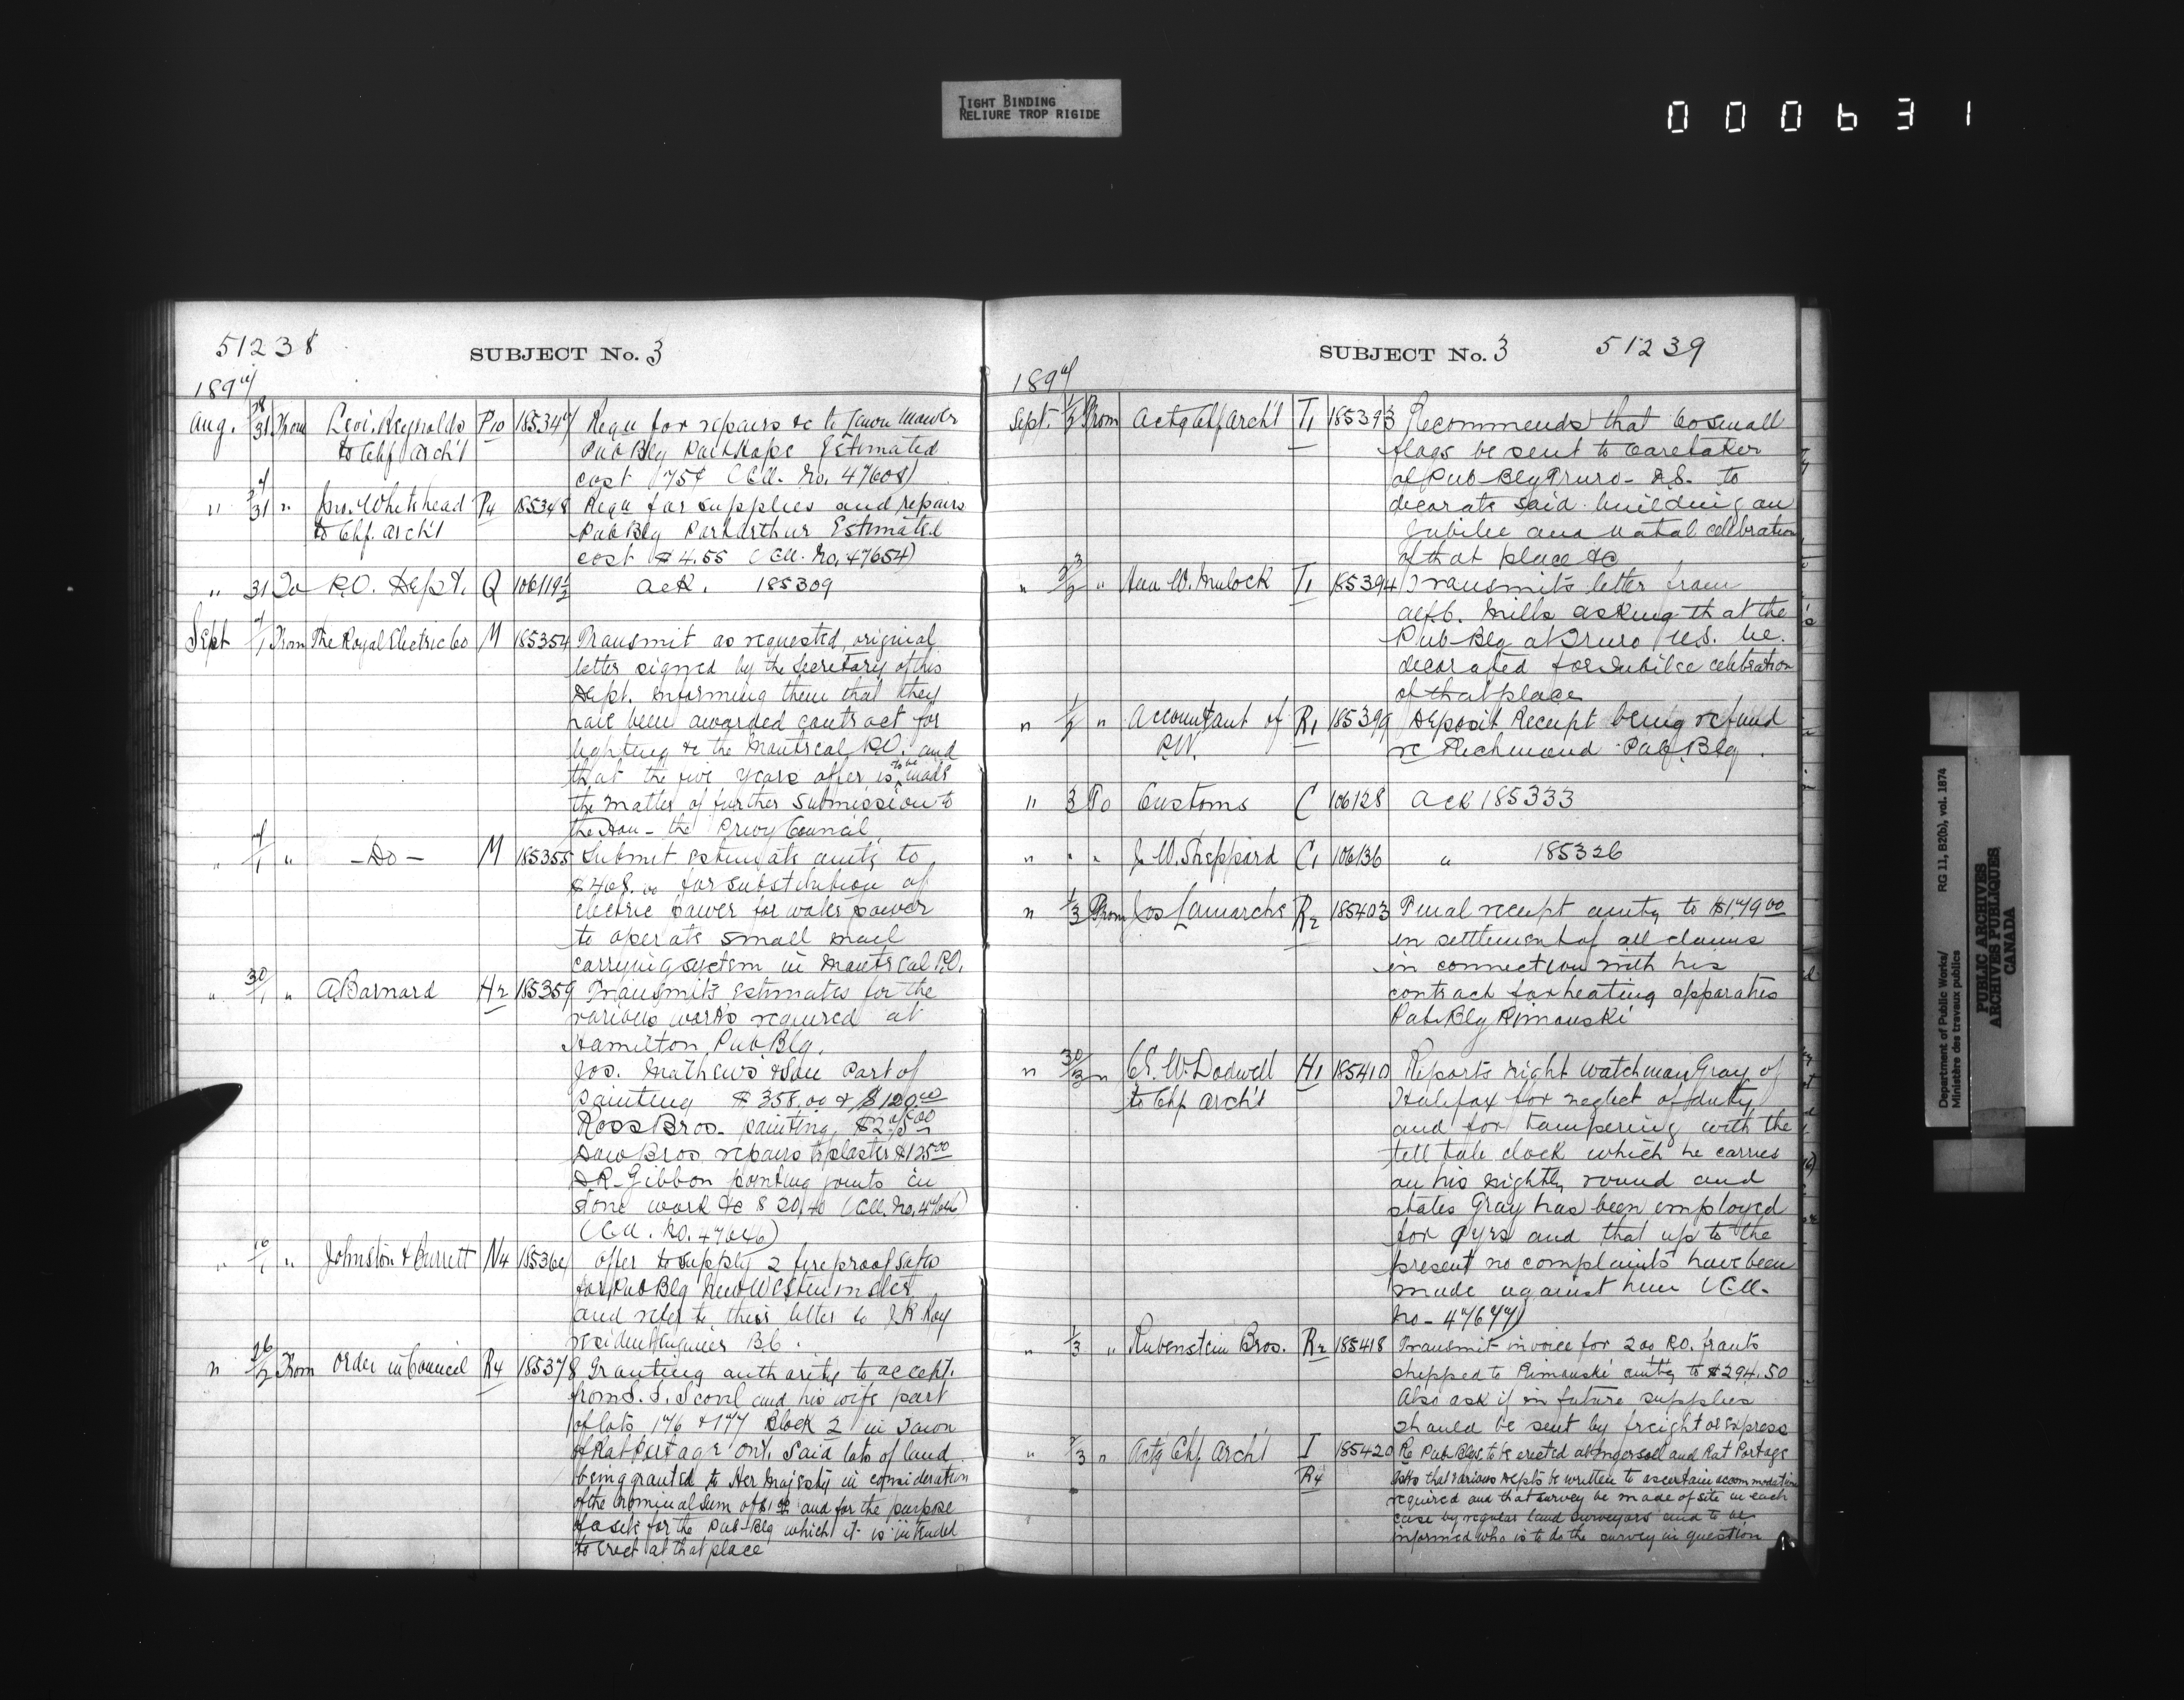 TIGHT BINDING
RELIURE TROP RIGIDE
000631
51238
SUBJECT No. 3
1897
Aug. 28/31 From Levi Reynolds P10 185347 Requ for repairs &c to lawn mower
to Chf Arch't Pub Blg Estimated
cost 75¢ (Ell. No. 47608)
" 31 " Jno. Whitehead P4 185348 Requ for supplies and repairs
to Chf. Arch't Pub Blg Port Arthur Estimated
cost $4.55 (Ell. No. 47654)
" 31 To P.O. Dept. Q 106119½ Ack. 185309
Sept 1 From The Royal Electric Co M 185354 Transmit as requested, original
letter signed by the Secretary of this
Dept. informing them that they
have been awarded contract for
lighting &c the Montreal P.O. and
that the five years offer is to be made
the matter of further submission to
the Hon - the Privy Council
" 1 " - Do - M 185355 Submit estimate amtg to
$408.00 for substitution of
electric power for water power
to operate small mail
carrying system in Montreal P.O.
" 30/1 " A Barnard H2 185359 Transmits estimates for the
various works required at
Hamilton Pub Blg.
Jos. Mathews & Son part of
painting $358.00 & $120.00
Ross Bros. painting $275.00
Bros repairs to plaster $125.00
Gibbon pointing joints in
stone work &c $20.40 (Ell. No. 47646)
(Ell. No. 47646)
" 1 " Johnston & Burrett N4 offer to supply 2 fireproof safes
for Pub Blg New Westminster
and refer to their letter to Roy
resident Engineer B.C.
" 26/2 From Order in Council R4 185378 Granting authority to accept
from Scovil and his wife part
of lots 176 & 177 Block 2 in Town
of Rat Portage Ont. Said lots of land
being granted to Her Majesty in consideration
of the nominal sum of $1.00 and for the purpose
of a site for the Pub-Blg which it is intended
to erect at that place
SUBJECT No. 3
51239
1897
Sept. 1/2 From Actg Chf Arch't T1 185393 Recommends that 60 small
flags be sent to Caretaker
of Pub Blg Truro - N.S. to
decorate said building on
Jubilee and Natal celebration
of that place &c
" 2 " Hon W. Mulock T1 185394 Transmits letter from
Mills asking that the
Pub-Blg at Truro N.S. be
decorated for Jubilee celebration
of that place
" 1/2 " Accountant of R1 185399 Deposit Receipt being refund
P.W. re Richmond Pub Blg.
" 3 To Customs C 106128 Ack 185333
" " " J. W. Sheppard C1 106136 " 185326
" 1/3 From Jos Lamarche R2 185403 Final receipt amtg to $179.00
in settlement of all claims
in connection with his
contract for heating apparatus
Pub-Blg Rimouski
" 30/3 " C. E. W. Dodwell H1 185410 Reports night watchman Gray of
to Chf Arch't Halifax for neglect of duty
and for tampering with the
tell tale clock which he carries
on his nightly round and
states Gray has been employed
for 9 yrs and that up to the
present no complaints have been
made against him (Ell.
No - 47677)
" 1/3 " Rubenstein Bros. R2 185418 Transmit invoice for 200 P.O. fronts
shipped to Rimouski amtg to $294.50
Also ask if in future supplies
should be sent by freight or express
" 3 " Actg Chf Arch't I 185420 Re Pub Blgs to be erected at Ingersoll and Rat Portage
R4 Asks that various Depts be written to ascertain accommodation
required and that survey be made of site in each
case by regular land surveyors and to be
informed who is to do the survey in question
Department of Public Works/ RG 11, B2(b), vol. 1874
Ministère des travaux publics
PUBLIC ARCHIVES
ARCHIVES PUBLIQUES
CANADA